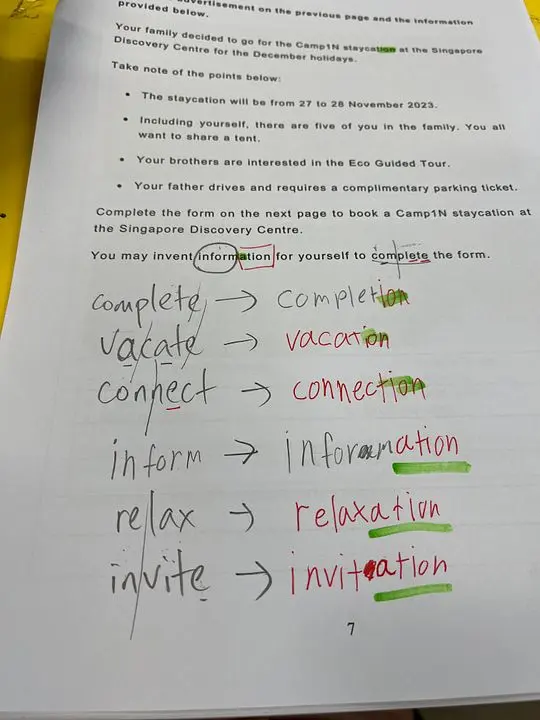 advertisement on the previous page and the information
provided below.
Your family decided to go for the Camp1N staycation at the Singapore
Discovery Centre for the December holidays.
Take note of the points below:
• The staycation will be from 27 to 28 November 2023.
• Including yourself, there are five of you in the family. You all
want to share a tent.
• Your brothers are interested in the Eco Guided Tour.
• Your father drives and requires a complimentary parking ticket.
Complete the form on the next page to book a Camp1N staycation at
the Singapore Discovery Centre.
You may invent information for yourself to complete the form.
complete → completion
vacate → vacation
connect → connection
inform → information
relax → relaxation
invite → invitation
7